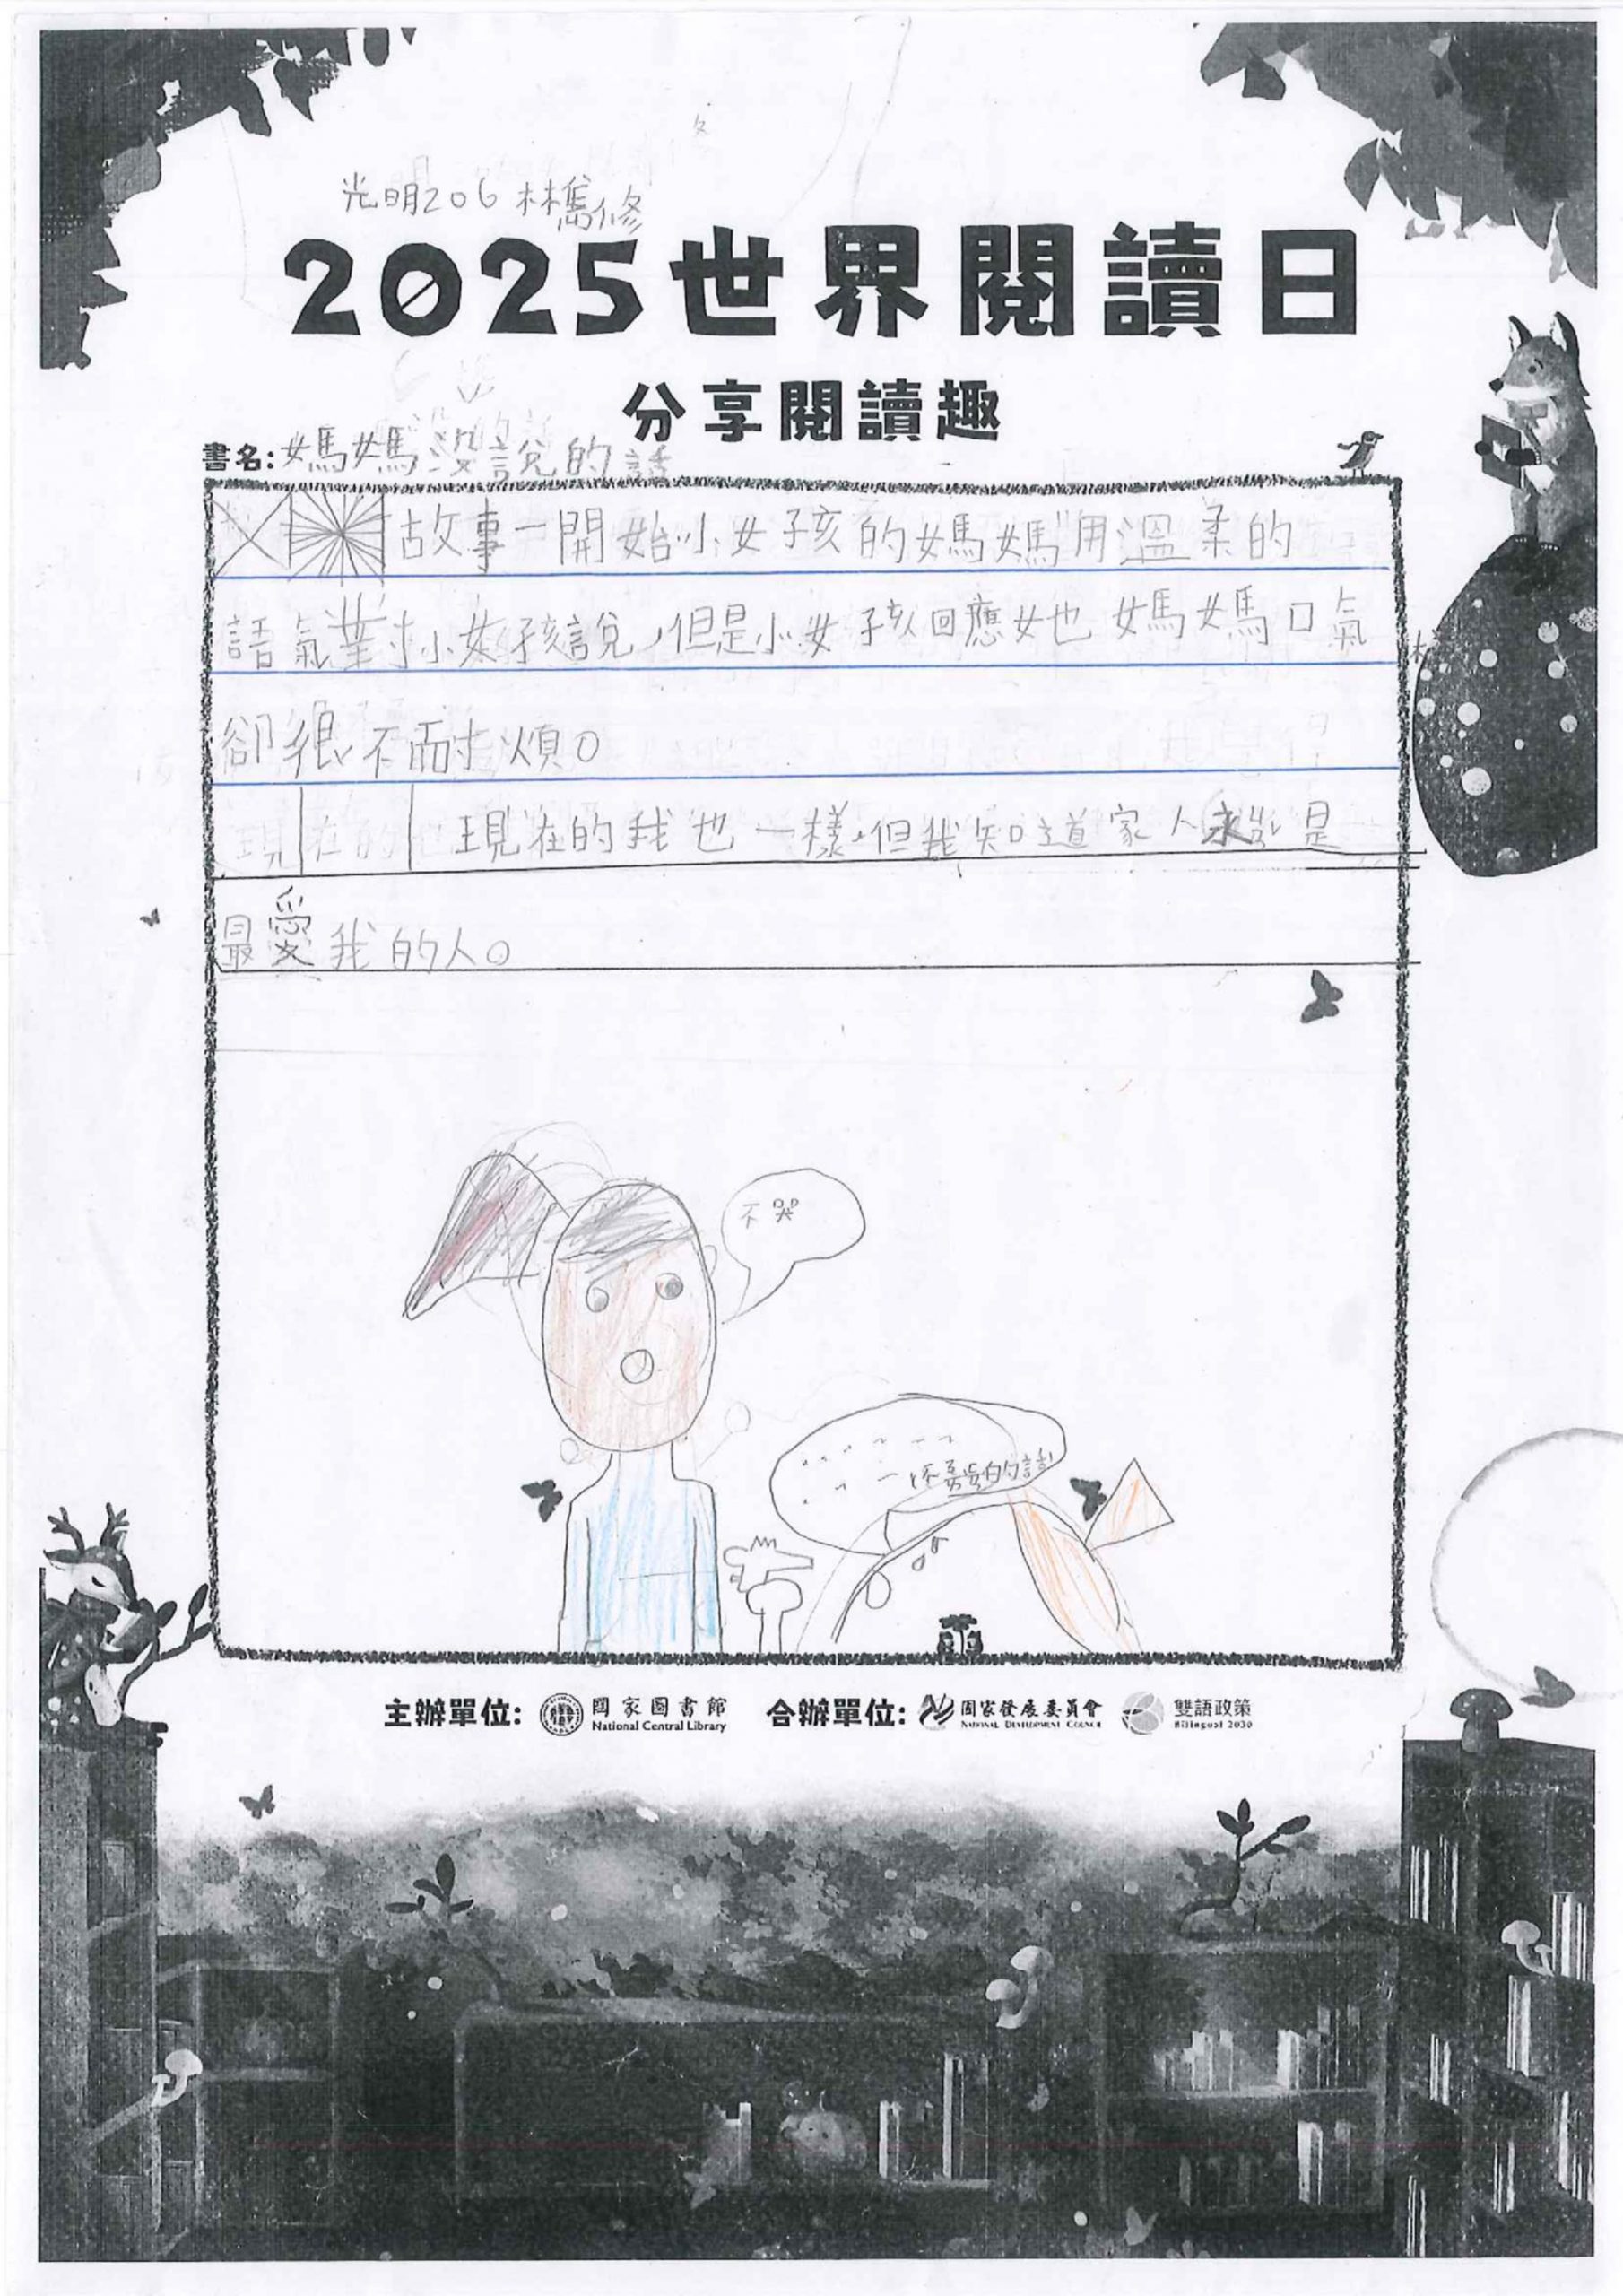 光明206 林雋修
2025世界閱讀日
分享閱讀趣
書名:媽媽沒說的話
故事一開始小女孩的媽媽用溫柔的
語氣對小女孩說,但是小女孩回應她媽媽口氣
卻很不耐煩。
現在的我也一樣,但我知道家人永遠是
最愛我的人。
不哭
的話
主辦單位: 國家圖書館 National Central Library 合辦單位: 國家發展委員會 NATIONAL DEVELOPMENT COUNCIL 雙語政策 Bilingual 2030